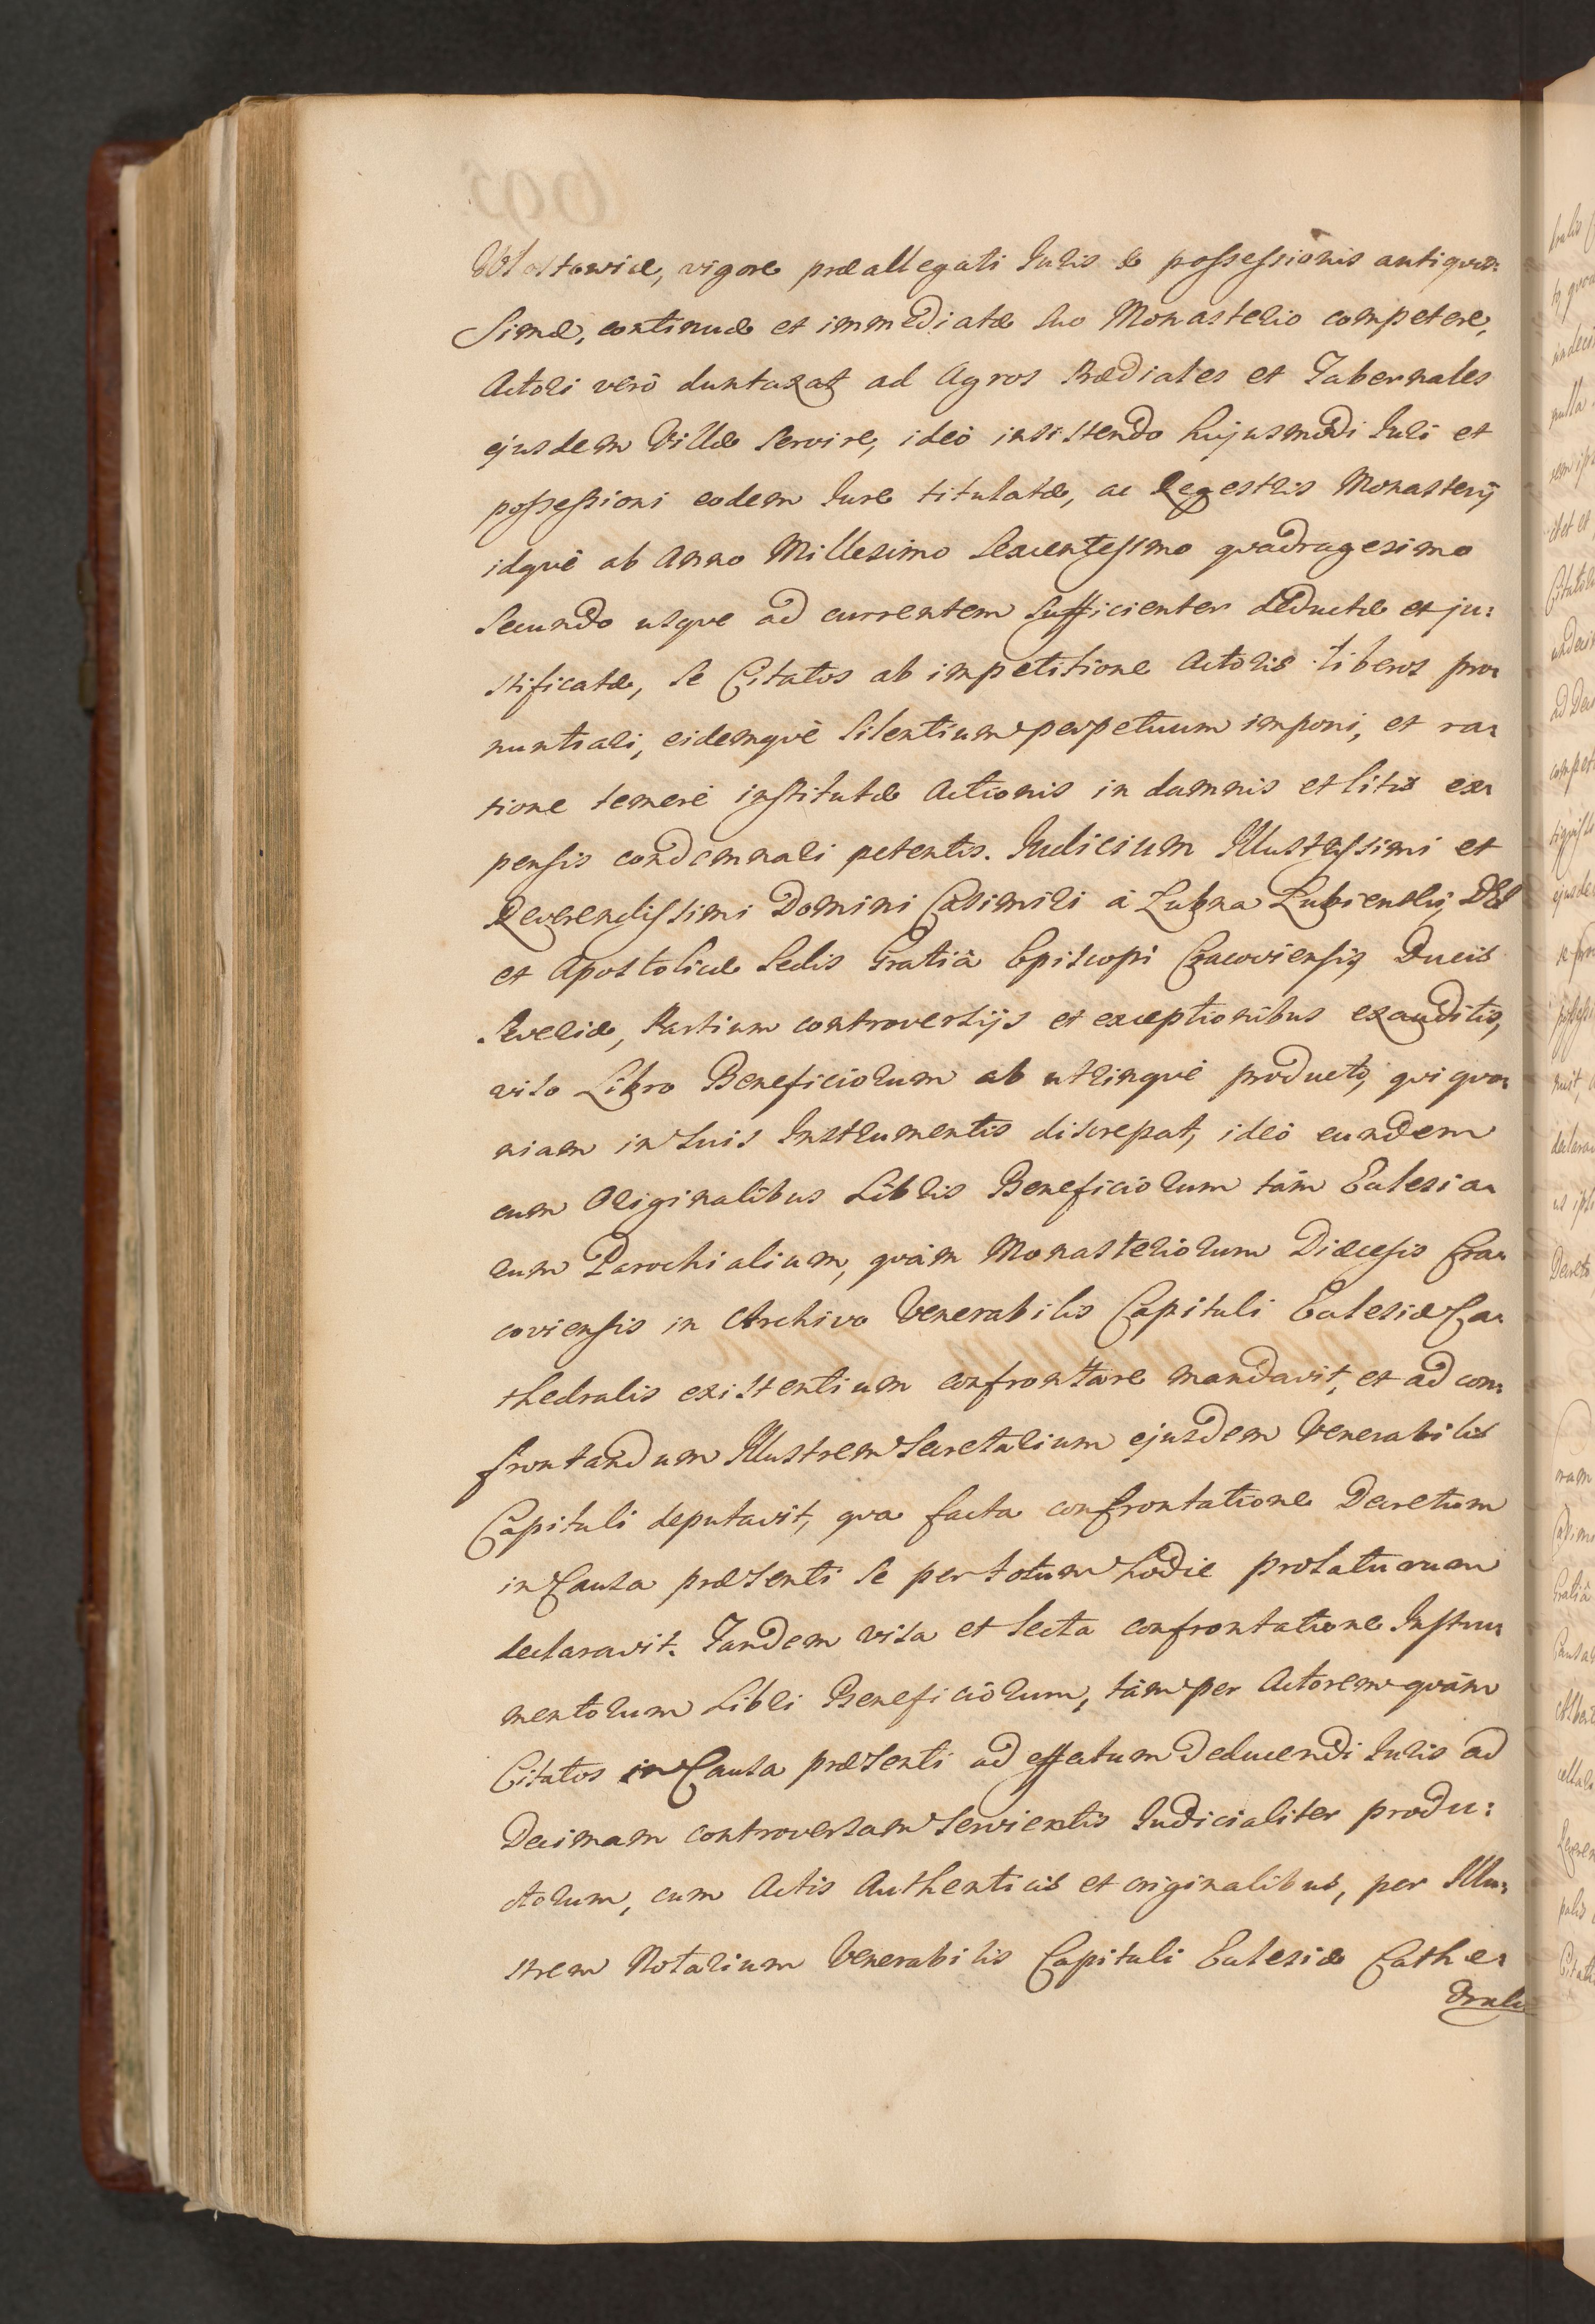 Wlostowiæ, vigore præallegati Juris & possessionis antiquis:
simæ, continuæ et immediatæ suo Monasterio competere,
Actori verò duntaxat ad Agros Prædiales et Tabernales
ejusdem Villæ servire, ideò insistendo hujusmodi Juri et
possessioni eodem Jure titulatæ, ac Regestris Monasterij
idquè ab Anno Millesimo Sexcentesimo quadragesimo
Secundo usque ad currentem sufficienter deductæ et ju:
stificatæ, se Citatos ab impetitione Actoris liberos pro:
nuntiari, eidemquè silentium perpetuum imponi, et ra:
tione temerè institutæ Actionis in damnis et litis ex:
pensis condemnari petentis. Judicium Illustrissimi et
Reverendissimi Domini Casimiri à Lubna Lubienski, DEI
et Apostolicæ Sedis Gratiâ Episcopi Cracoviensis, Ducis
Severiæ, Partium controversijs et exceptionibus exauditis,
viso Libro Beneficiorum ab utrinquè producto, qui quo:
niam in suis Instrumentis discrepat, ideò eundem
cum Originalibus Libris Beneficiorum tàm Ecclesia:
rum Parochialium, quàm Monasteriorum Diæcesis Cra:
coviensis in Archivo Venerabilis Capituli Ecclesiæ Ca:
thedralis existentium confrontare mandavit, et ad con:
frontandum Illustrem Secretarium ejusdem Venerabilis
Capituli deputavit, qua facta confrontatione Decretum
in Causa præsenti se per totum hodie prolaturum
declaravit. Tandem visa et lecta confrontatione Instru:
mentorum Libri Beneficiorum, tàm per Actorem quàm
Citatos in Causa præsenti ad effectum deducendi Juris ad
Decimam controversam servientis Judicialiter produ:
ctorum, cum Actis Authenticis et originalibus, per Illu:
strem Notarium Venerabilis Capituli Ecclesiæ Cathe:
dralis